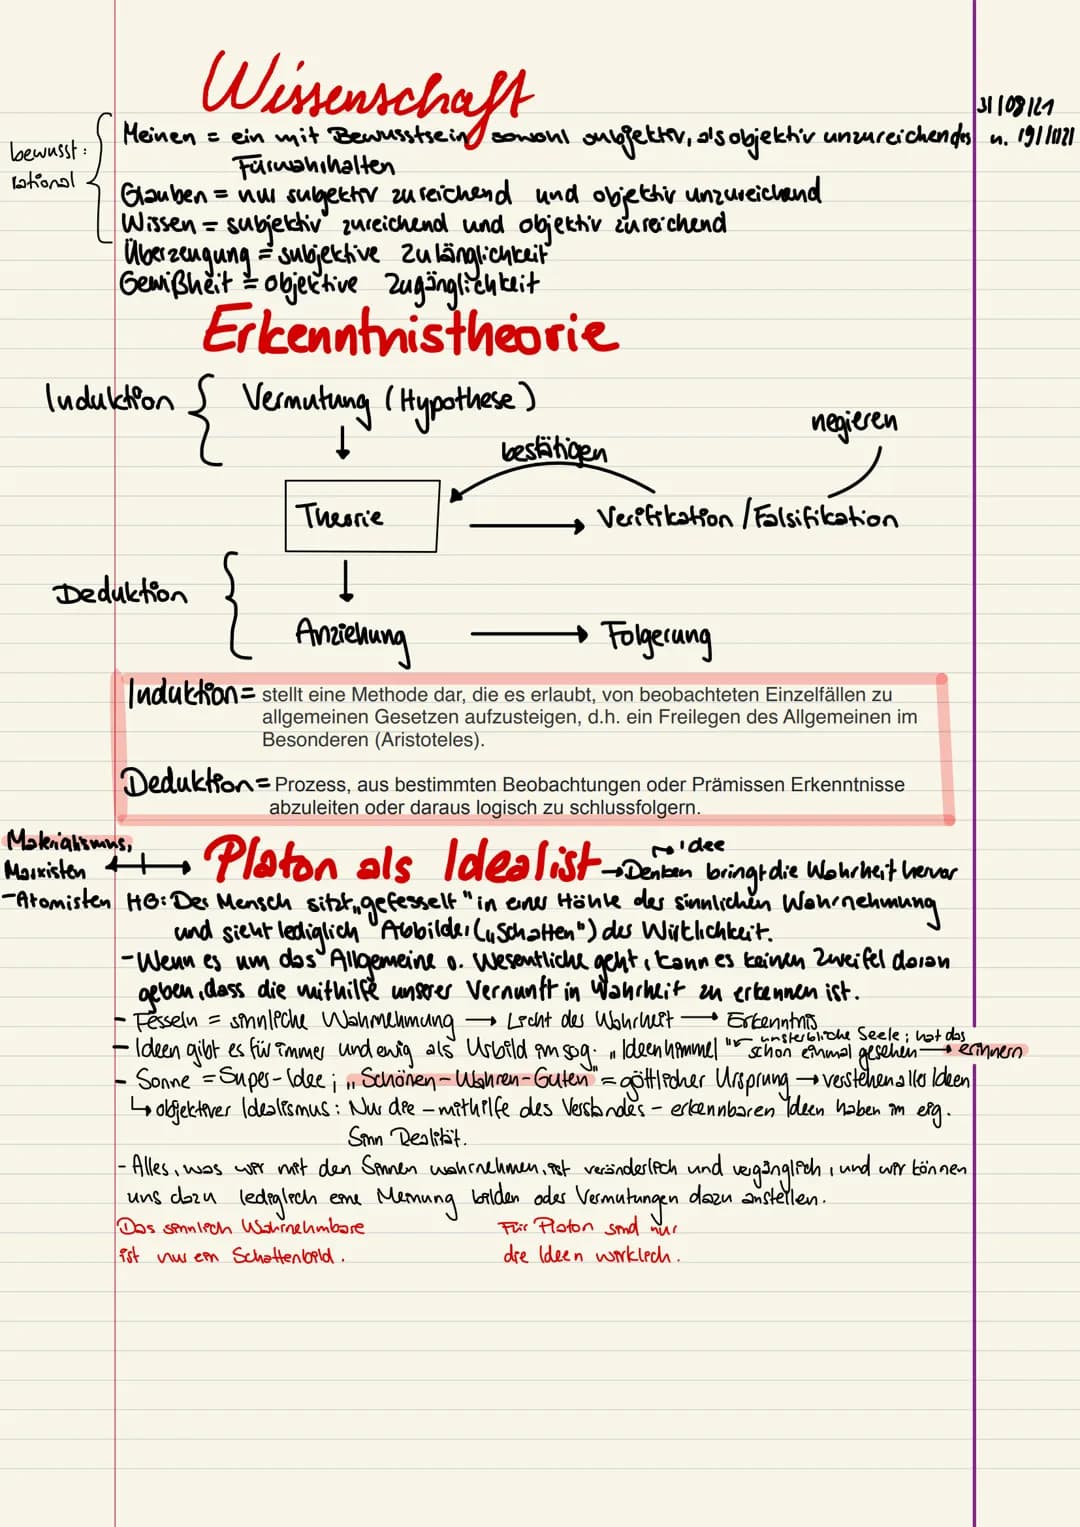 Wissenschaft
31/08/21
u. 19/11/21
bewusst:
rational
Meinen = ein mit Bewusstsein sowohl subjektiv, als objektiv unzureichendes
Fürwahrhalten
Glauben = nur subjektiv zureichend und objektiv unzureichend
Wissen = subjektiv zureichend und objektiv zureichend
Überzeugung = subjektive Zulänglichkeit
Gewißheit = objektive Zugänglichkeit
Erkenntnistheorie
Induktion { Vermutung (Hypothese)
negieren
bestätigen
Theorie → Verifikation / Falsifikation
Deduktion {
Anziehung → Folgerung
Induktion = stellt eine Methode dar, die es erlaubt, von beobachteten Einzelfällen zu
allgemeinen Gesetzen aufzusteigen, d.h. ein Freilegen des Allgemeinen im
Besonderen (Aristoteles).
Deduktion = Prozess, aus bestimmten Beobachtungen oder Prämissen Erkenntnisse
abzuleiten oder daraus logisch zu schlussfolgern.
Materialismus,
Marxisten
-Atomisten
Platon als Idealist → Denken bringt die Wahrheit hervor
idee
HG: Der Mensch sitzt „gefesselt" in einer Höhle der sinnlichen Wahrnehmung
und sieht lediglich Abbilder („Schatten") des Wirklichkeit.
- Wenn es um das Allgemeine o. Wesentliche geht, kann es keinen Zweifel daran
geben, dass die mithilfe unserer Vernunft in Wahrheit zu erkennen ist.
- Fesseln = sinnliche Wahrnehmung → Licht der Wahrheit → Erkenntnis
- Ideen gibt es für immer und ewig als Urbild im sog. „Ideenhimmel" unsterbliche Seele; hat das
schon einmal gesehen → erinnern
- Sonne = Super-Idee; „Schönen-Wahren-Guten" = göttlicher Ursprung → verstehen aller Ideen
↳ objektiver Idealismus: Nur die – mithilfe des Verstandes – erkennbaren Ideen haben im eig.
Sinn Realität.
- Alles, was wir mit den Sinnen wahrnehmen, ist veränderlich und vergänglich, und wir können
uns dazu lediglich eine Meinung bilden oder Vermutungen dazu anstellen.
Das sinnlich Wahrnehmbare
ist nur ein Schattenbild.
Für Platon sind nur
die Ideen wirklich.